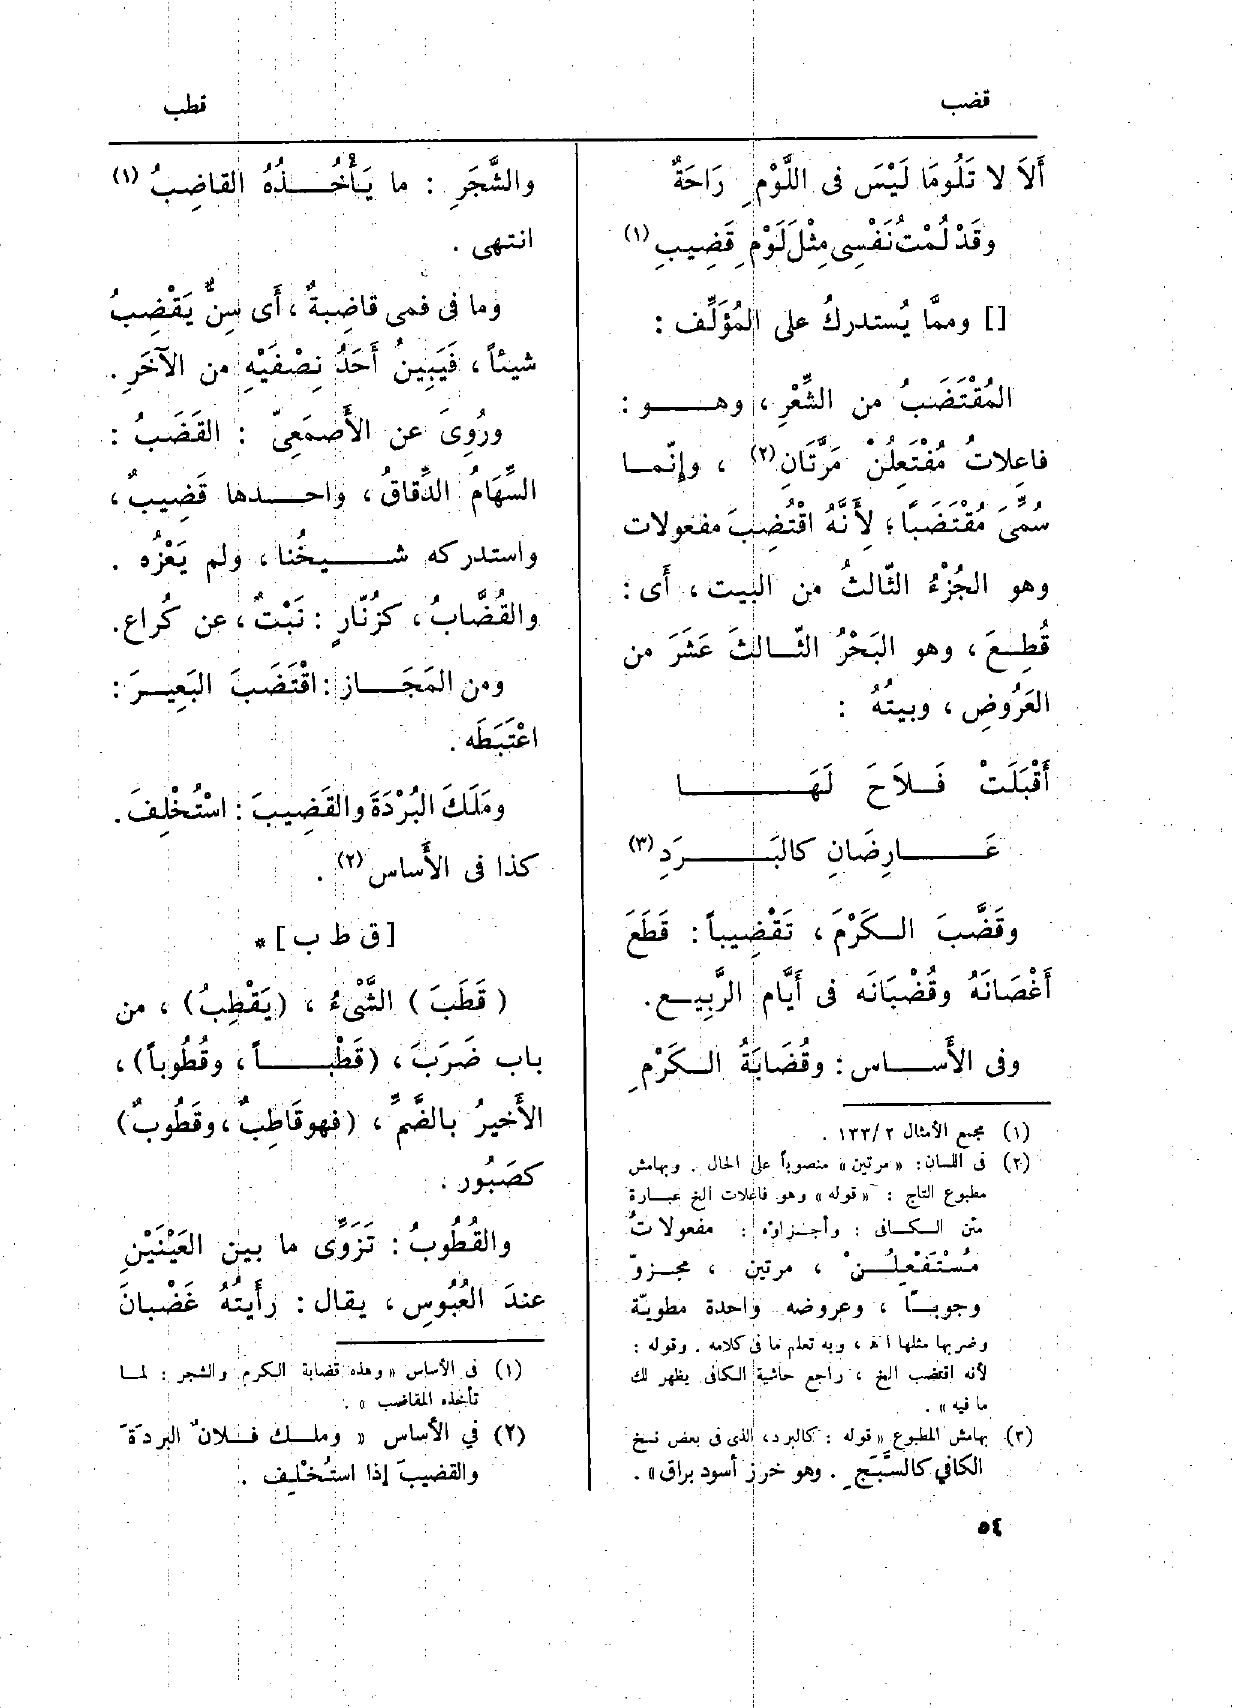 قضب
قطب
أَلاَ لا تَلُومَا لَيْسَ فى اللَّوْمِ رَاحَةٌ
وقَدْ لُمْتُ نَفْسِى مِثْلَ لَوْمِ قَضِيبِ (١)
[] وممَّا يُستدركُ على المُؤَلِّف :
المُقْتَضَبُ من الشِّعْرِ ، وهــو :
فاعِلاتُ مُفْتَعِلُنْ مَرَّتَانِ (٢) ، وإنّمـا
سُمِّىَ مُقْتَضَبًا ؛ لِأَنَّهُ اقْتُضِبَ مفعولات
وهو الجُزْءُ الثّالثُ من البيت ، أَى :
قُطِـعَ ، وهو البَحْرُ الثّـالثَ عَشَرَ من
العَرُوضِ ، وبيتُهُ :
أَقْبَلَتْ فَـلاَحَ لَهَــــا
عَــــارِضَانِ كالبَــــرَدِ (٣)
وقَضَّبَ الـكَرْمَ ، تَقْضِيباً : قَطَعَ
أَغْصَانَهُ وقُضْبَانَه فى أَيَّام الرَّبِيـع .
وفى الأَســـاس : وقُضَابَةُ الـكَرْمِ
(١) مجمع الأمثال ٢ /١٣٣ .
(٢) فى اللسان : « مرتين » منصوباً على الحال . وبهامش
مطبوع التاج : « قوله » وهو فاعلات الخ عبـارة
متن الـكـافى : وأجـزاؤه : مفعولاتُ
مُسْتَفْعِلُـنْ ، مرتين ، مجزوّ
وجوبـًا ، وعروضه واحدة مطويّة
وضربها مثلها اﻫ ، وبه تعلم ما فى كلامه . وقوله :
لأنه اقتضب الخ ، راجع حاشية الكافى يظهر لك
ما فيه » .
(٣) بهامش المطبوع « قوله : كالبرد ، الذى فى بعض نسخ
الكافي كالسَّبَجِ . وهو خرز أسود براق » .
٥٤
والشَّجَرِ : ما يَأْخُـــذُهُ القاضِبُ (١)
انتهى .
وما فى فمى قاضِبةٌ ، أَى سِنٌّ يَقْضِبُ
شيئاً ، فَيَبِينُ أَحَدُ نِصْفَيْهِ من الآخَرِ .
ورُوِىَ عن الأَصمَعِىّ : القَضَبُ :
السِّهَامُ الدِّقاقُ ، واحــدها قَضِيبٌ ،
واستدركه شــيخُنا ، ولم يَعْزُه .
والقُضَّابُ ، كزُنّارٍ : نَبْتٌ ، عن كُراع .
ومن المَجَــاز : اقْتَضَبَ البَعِيـرَ :
اعْتَبَطَه .
ومَلَكَ البُرْدَةَ والقَضِيبَ : اسْتُخْلِفَ .
كذا فى الأَساس (٢) .
[ ق ط ب ] *
( قَطَبَ ) الشَّىْءُ ، ( يَقْطِبُ ) ، من
باب ضَرَبَ ، ( قَطْبــاً ، وقُطُوباً ) ،
الأَخيرُ بالضَّمِّ ، ( فهو قَاطِبٌ ، وقَطُوبٌ )
كصَبُورٍ .
والقُطُوبُ : تَزَوِّى ما بين العَيْنَيْنِ
عندَ العُبُوسِ ، يقال : رأَيتُهُ غَضْبانَ
(١) فى الأساس « وهذه قضابة الكرم والشجر : لمـا
تأخذه المقاضب » .
(٢) في الأساس « وملـك فـلانٌ البردَةَ
والقضيبَ إذا استُخْلِـف .